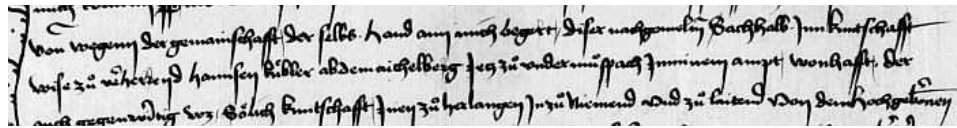 von wegen der gemainschafft der selbs hand an mich begert diser nachgemelten Sachhalb Inn kuntschafft
wise zů verherend hannsen kúbler ab dem aichelberg Jetz zů vndermůspach Jnn minem ampt wonhafft der
ouch gegenwirtig waz Sölich kuntschafft Jnen zů herlangen Jnzůniemend vnd zů lutend von dem hochgebornen